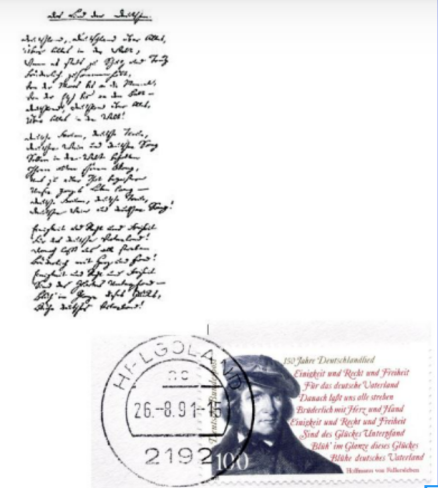 Das Lied der Deutschen.
Deutschland, Deutschland über Alles,
Über Alles in der Welt,
Wenn es stets zu Schutz und Trutz
Brüderlich zusammenhält,
Von der Maas bis an die Memel,
Von der Etsch bis an den Belt —
Deutschland, Deutschland über Alles,
Über Alles in der Welt!
Deutsche Frauen, deutsche Treue,
Deutscher Wein und deutscher Sang
Sollen in der Welt behalten
Ihren alten schönen Klang,
Uns zu edler That begeistern
Unser ganzes Leben lang —
Deutsche Frauen, deutsche Treue,
Deutscher Wein und deutscher Sang!
Einigkeit und Recht und Freiheit
Für das deutsche Vaterland!
Danach laßt uns alle streben
Brüderlich mit Herz und Hand!
Einigkeit und Recht und Freiheit
Sind des Glückes Unterpfand —
Blüh' im Glanze dieses Glückes,
Blühe deutsches Vaterland!
HELGOLAND
26.-8.91-15
2192
100
150 Jahre Deutschlandlied
Einigkeit und Recht und Freiheit
Für das deutsche Vaterland
Danach laßt uns alle streben
Brüderlich mit Herz und Hand
Einigkeit und Recht und Freiheit
Sind des Glückes Unterpfand
Blüh' im Glanze dieses Glückes
Blühe deutsches Vaterland
Hoffmann von Fallersleben